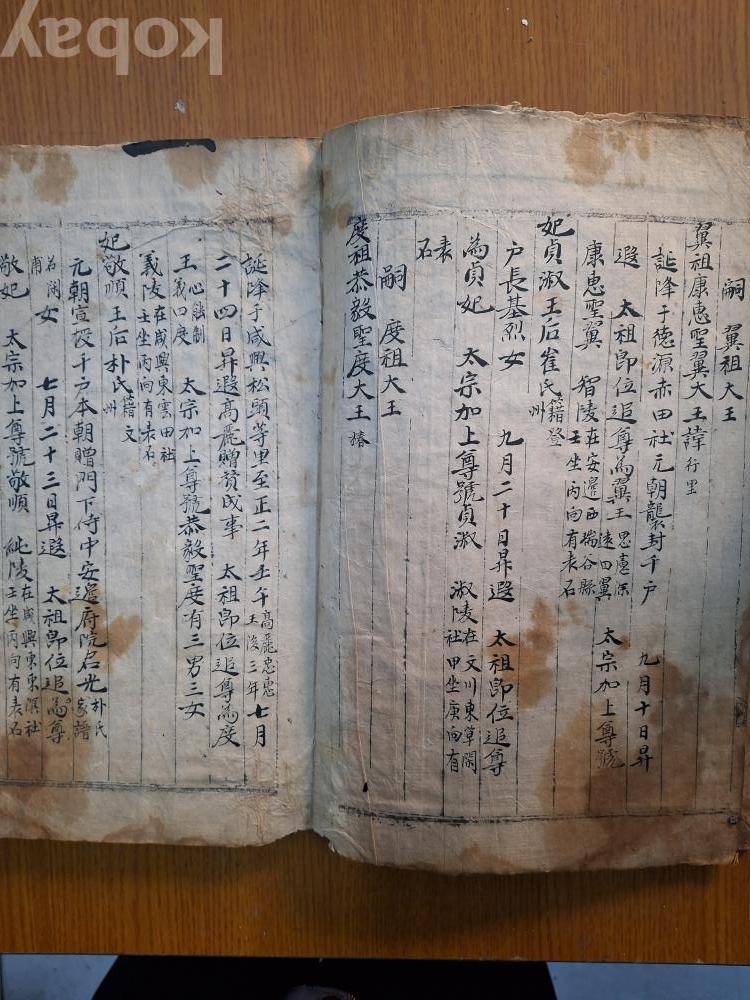 kobay
嗣 翼祖大王
翼祖康惠聖翼大王諱行里
誕降于德源赤田社元朝襲封千戶 九月十日昇
遐 太祖卽位追尊爲翼王思慮深遠曰翼 太宗加上尊號
康惠聖翼 智陵在安邊西瑞谷縣壬坐丙向有表石
妃貞淑王后崔氏籍登州
戶長基烈女 九月二十日昇遐 太祖卽位追尊
爲貞妃 太宗加上尊號貞淑 淑陵在文川東草閑社甲坐庚向有
表石
嗣 度祖大王
度祖恭毅聖度大王椿
誕降于咸興松頭等里至正二年壬午高麗忠惠王後三年七月
二十四日昇遐高麗贈贊成事 太祖卽位追尊爲度
王心能制義曰度 太宗加上尊號恭毅聖度有三男三女
義陵在咸興東雲田社壬坐丙向有表石
妃敬順王后朴氏籍文州
元朝宣授千戶本朝贈門下侍中安邊府院君光朴氏家譜
名閑甫女 七月二十三日昇遐 太祖卽位追爲尊
敬妃 太宗加上尊號敬順 純陵在咸興東東溟社壬坐丙向有表石